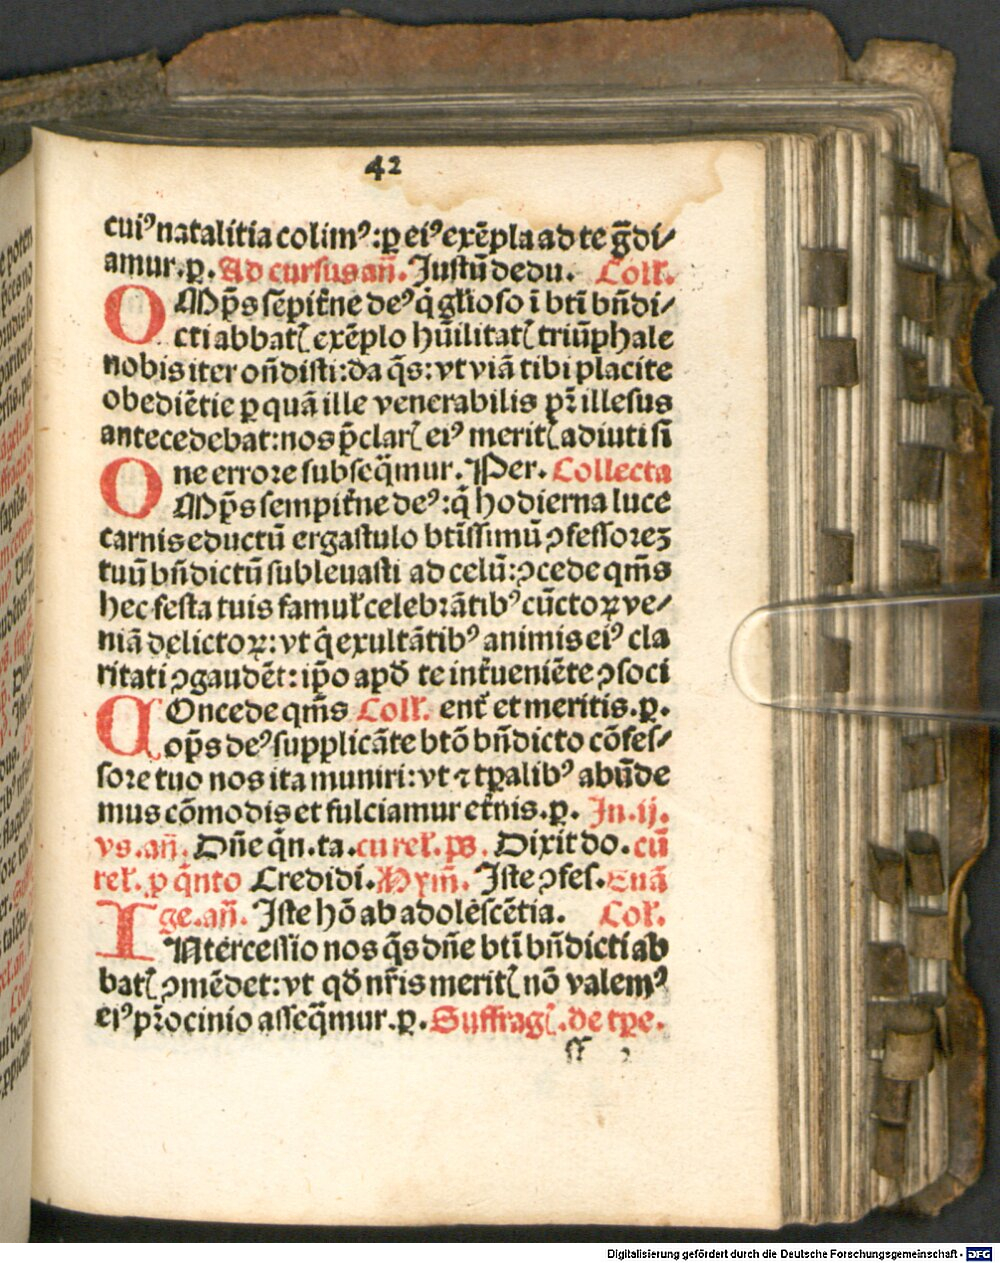 42
cuiꝰ natalitia colimꝰ: ꝑ eiꝰ exẽpla ad te g̃di⸗
amur. ꝑ. Ad cursus añ. Justũ dedu. Coll̃.
OMp̃s sẽpit̃ne deꝰ q̃ gl̃ioso ĩ bt̃i bñdi⸗
cti abbatꝭ exẽplo hũilitatꝭ triũphale
nobis iter oñdisti: da q̃s: vt viã tibi placite
obediẽtie ꝑ quã ille venerabilis pr̃ illesus
antecedebat: nos p̃clarꝭ eiꝰ meritꝭ adiuti si
ne errore subseq̃mur. Per. Collecta
OMp̃s sempit̃ne deꝰ: q̃ hodierna luce
carnis eductũ ergastulo bt̃issimũ ꝯfessoreꝫ
tuũ bñdictũ subleuasti ad celũ: ꝯcede q̃ms
hec festa tuis famul̃ celebrãtibꝰ cũctoꝝ ve⸗
niã delictoꝝ: vt q̃ exultãtibꝰ animis eiꝰ cla
ritati ꝯgaudẽt: ip̃o apđ te int̃ueniẽte ꝯsoci
ent̃ et meritis. ꝑ. Coll̃.
COncede q̃ms
op̃s deꝰ supplicãte bt̃o bñdicto cõfes⸗
sore tuo nos ita muniri: vt ⁊ tꝑalibꝰ abũde
mus cõmodis et fulciamur et̃nis. ꝑ. In .ij.
vs. añ. Dñe q̃n. ta. cu rel̃. ps. Dixit do. cũ
rel̃. ꝑ q̃nto Credidi. Hym̃. Iste ꝯfes. Euã
ge. añ. Iste hõ ab adolescẽtia. Col̃.
INtercessio nos q̃s dñe bt̃i bñdicti ab
batꝭ ꝯmẽdet: vt qđ nr̃is meritꝭ nõ valemꝰ
eiꝰ pr̃ocinio asseq̃mur. ꝑ. Suffragꝭ. de tꝑe.
ff 2
Digitalisierung gefördert durch die Deutsche Forschungsgemeinschaft - DFG